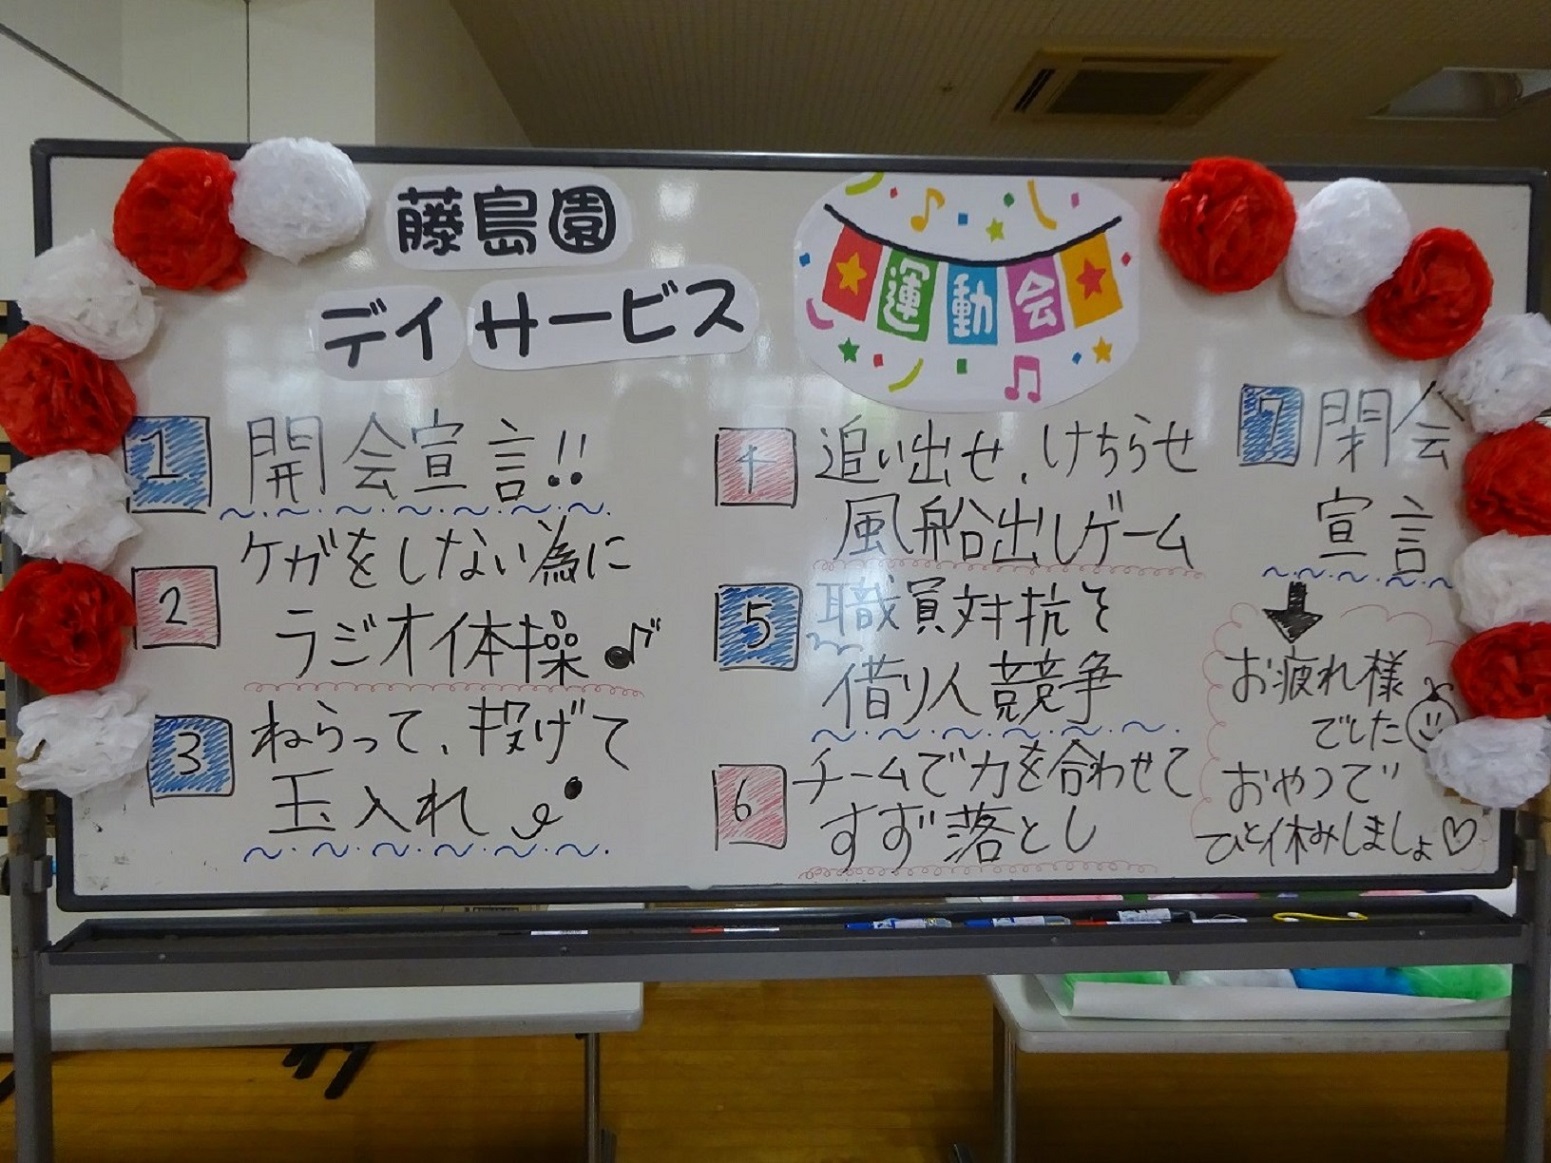 藤島園
デイサービス
運動会
1 開会宣言!!
2 ケガをしない為に
ラジオ体操♪
3 ねらって、投げて
玉入れ
4 追い出せ、けちらせ
風船出しゲーム
5 職員対抗で
借り人競争
6 チームで力を合わせて
すず落とし
7 閉会
宣言
お疲れ様
でした
おやつで
ひと休みしましょ♡